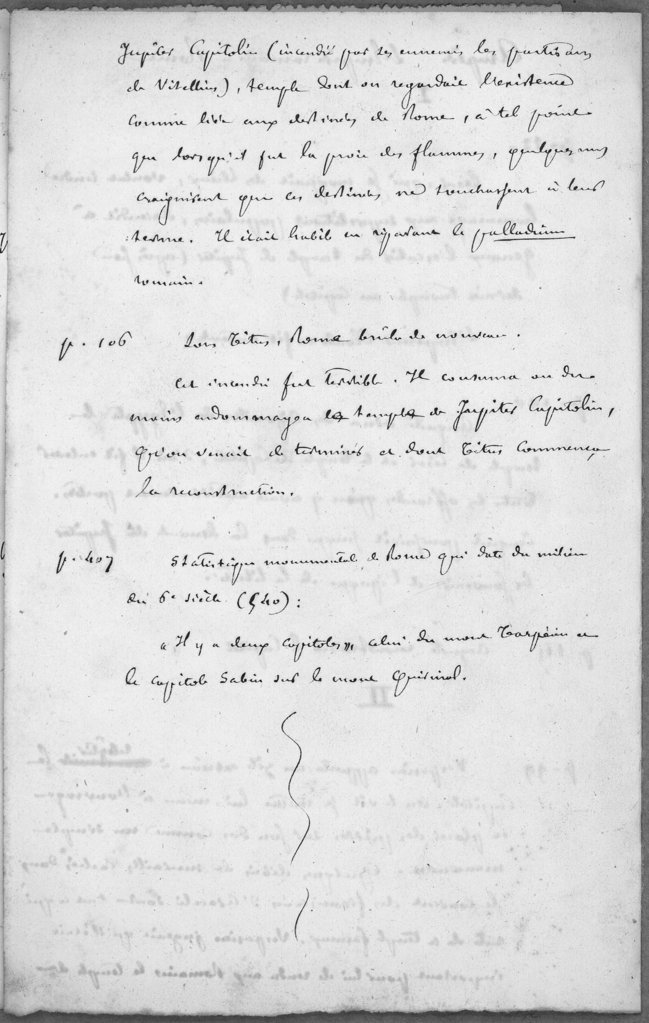 Jupiter Capitolin (incendié par ses ennemis les partisans
de Vitellius), temple dont on regardait l'existence
comme liée aux destinées de Rome, à tel point
que lorsqu'il fut la proie des flammes, quelques uns
craignirent que ces destinées ne touchassent à leur
terme. Il était habile en réparant le palladium
romain.
p. 106 Sous Titus, Rome brûla de nouveau.
Cet incendie fut terrible. Il consuma ou du
moins endommagea le temple de Jupiter Capitolin,
qu'on venait de terminer et dont Titus commença
la reconstruction.
p. 407 Statistique monumentale de Rome qui date du milieu
du 6e siècle (540) :
"Il y a deux capitoles", celui du mont Tarpéien et
le capitole Sabin sur le mont Quirinal.